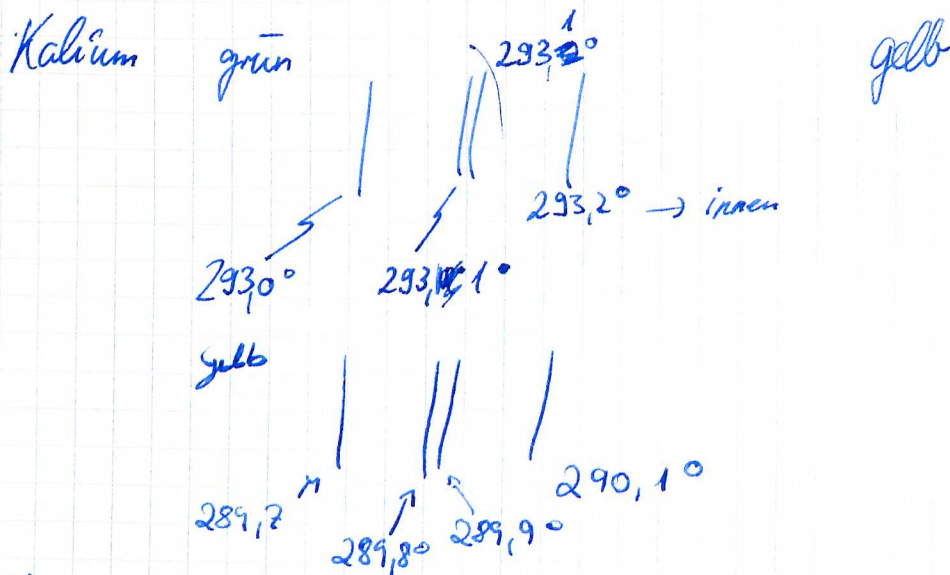 Kalium grün 293,1° gelb
293,2° → innen
293,0° 293,1°
gelb
290,1°
289,7
289,8° 289,9°